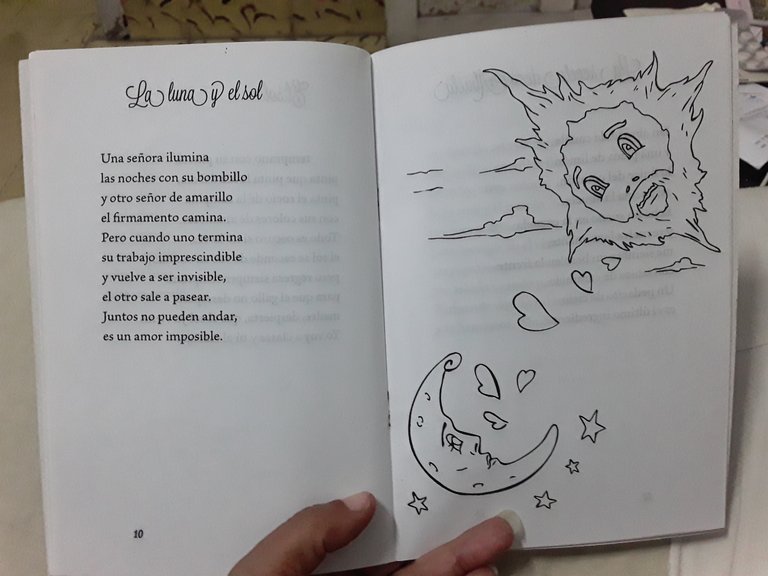 La luna y el sol
Una señora ilumina
las noches con su bombillo
y otro señor de amarillo
el firmamento camina.
Pero cuando uno termina
su trabajo imprescindible
y vuelve a ser invisible,
el otro sale a pasear.
Juntos no pueden andar,
es un amor imposible.
10